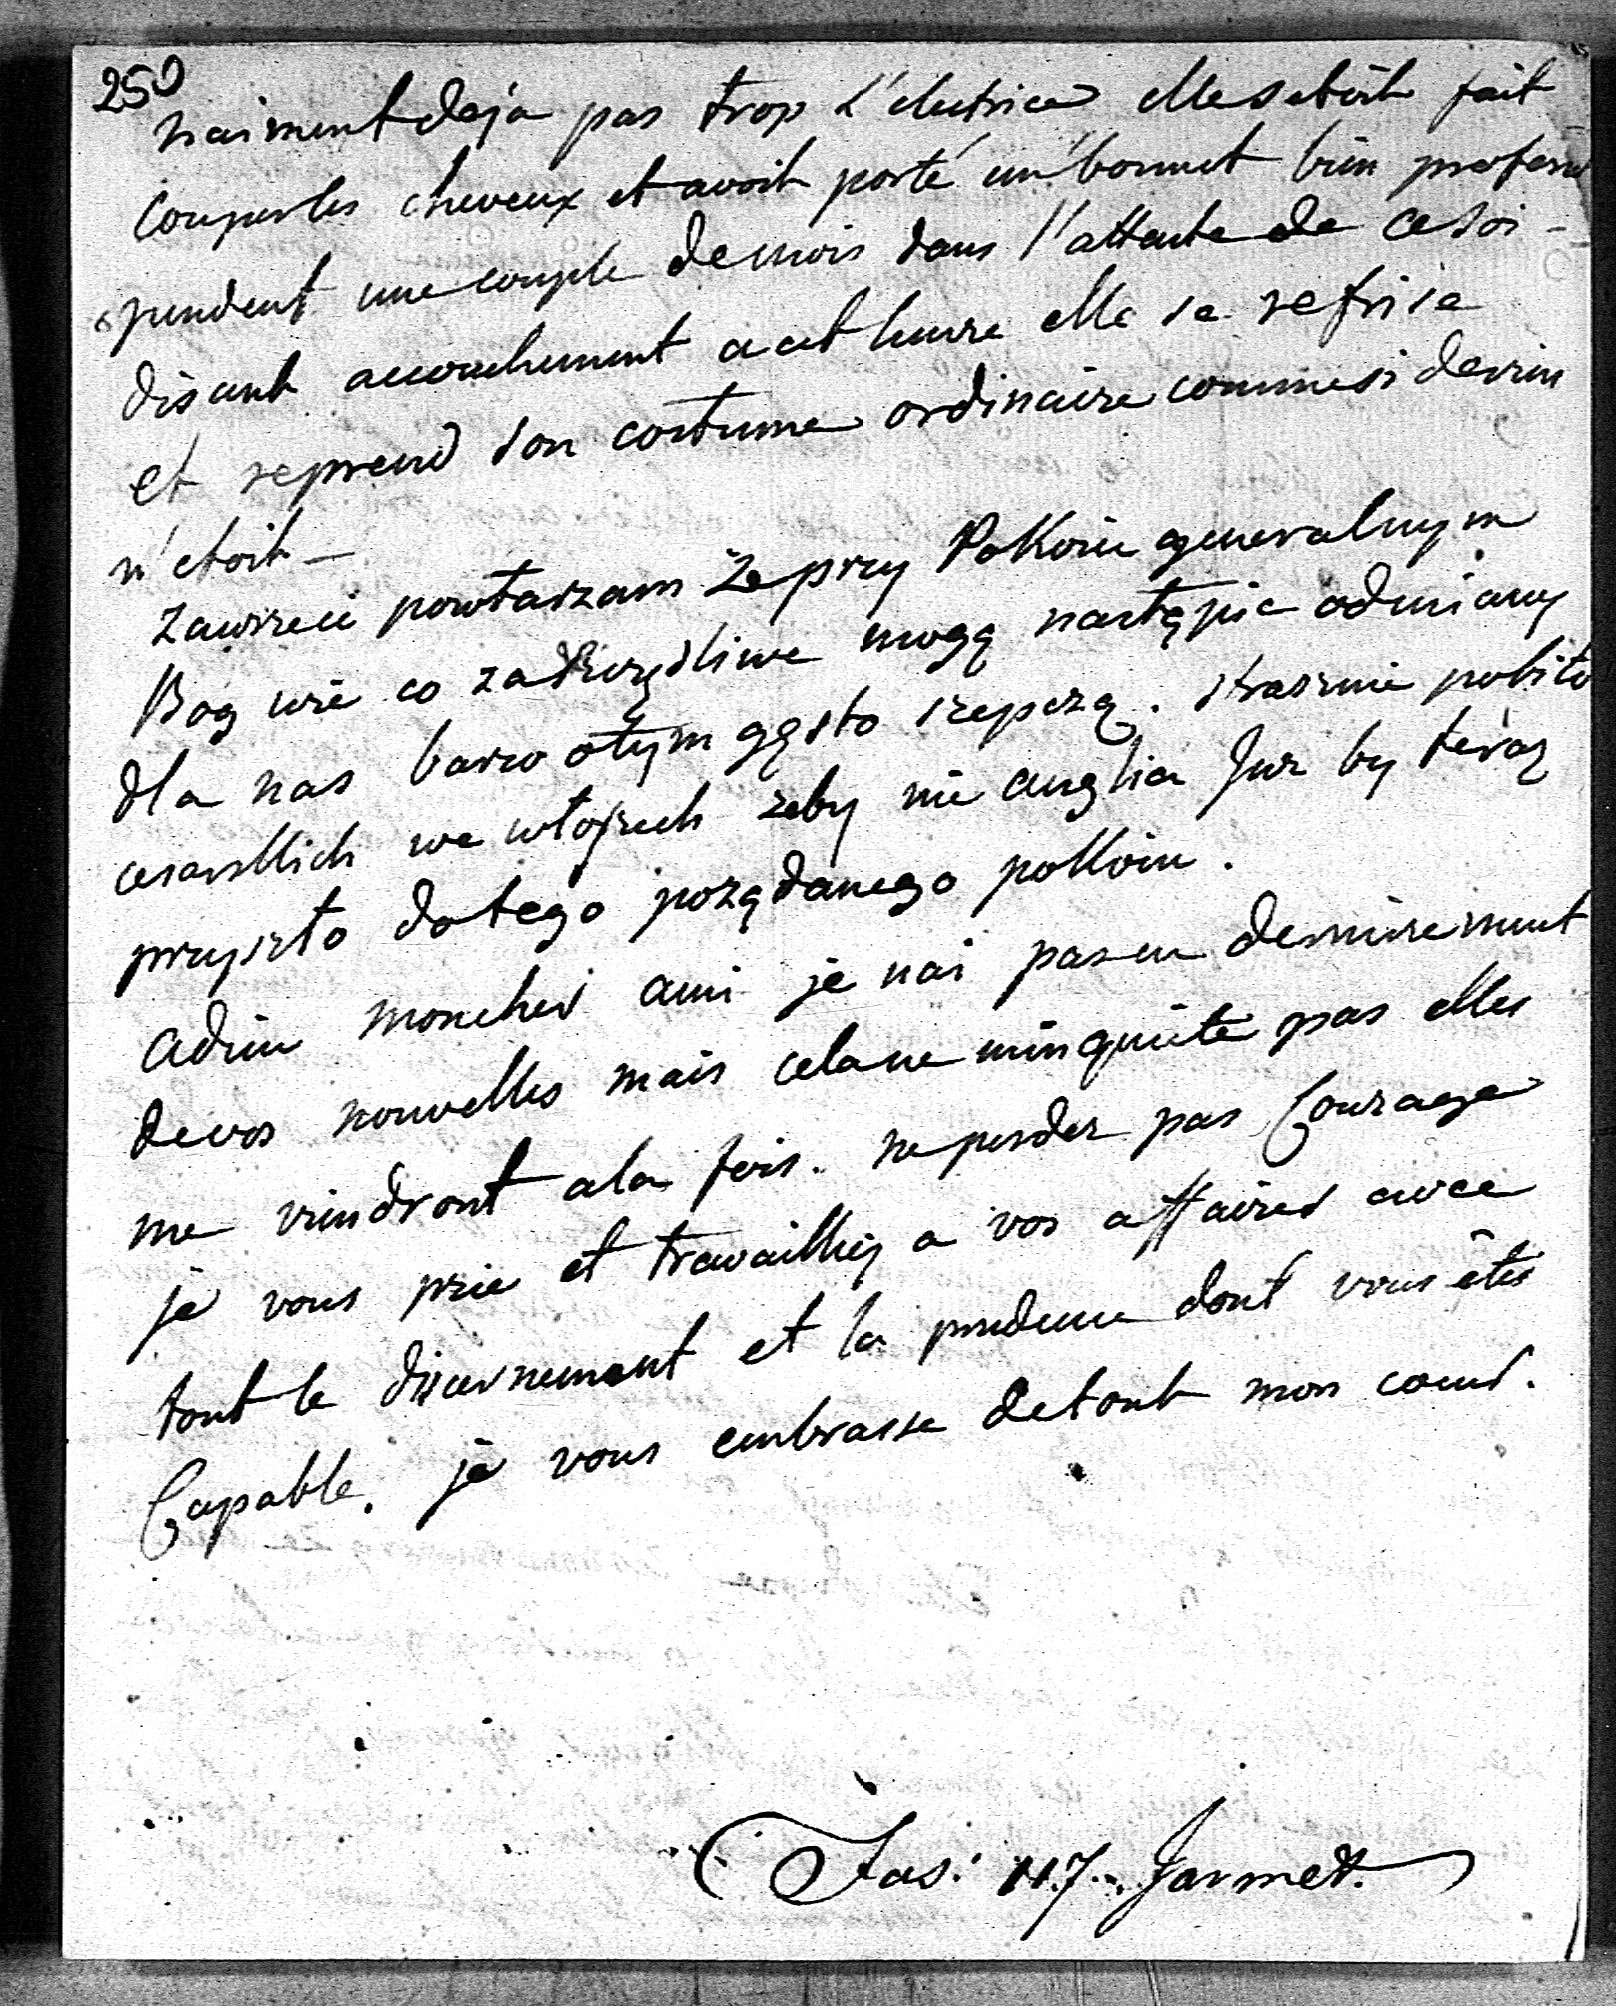 250
naiment deja pas trop L'electrice elle s etoit fait
couper les cheveux et avoit porté un bonnet bien
pendent une couple de mois dans l'attente de ce soi-
disant accouchement a cet heure elle se refrise
et reprend son costume ordinaire comme si de rien
n'etoit —
zawsze ci powtarzam że przy Pokoiu generalnym
Bog wie co za mogą nastąpic odmiany
dla nas barzo otym gęsto szepczą. strasznie pobito
cesarskich we włoszech zeby nie anglia Juz by teraz
przyszło do tego pożądanego pokoiu.
adieu mon cher ami je nai pas eu dernierement
de vos nouvelles mais cela ne minquiete pas elles
me viendront a la fois. ne perdez pas Courage
je vous prie et travailliez a vos affaires avec
tout le discernement et la prudence dont vous êtes
Capable. je vous embrasse de tout mon coeur.